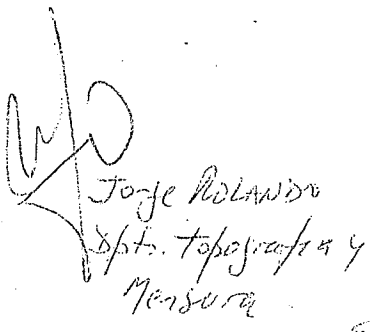 Jorge ROLANDO
Dpto. topografia y
Mensura